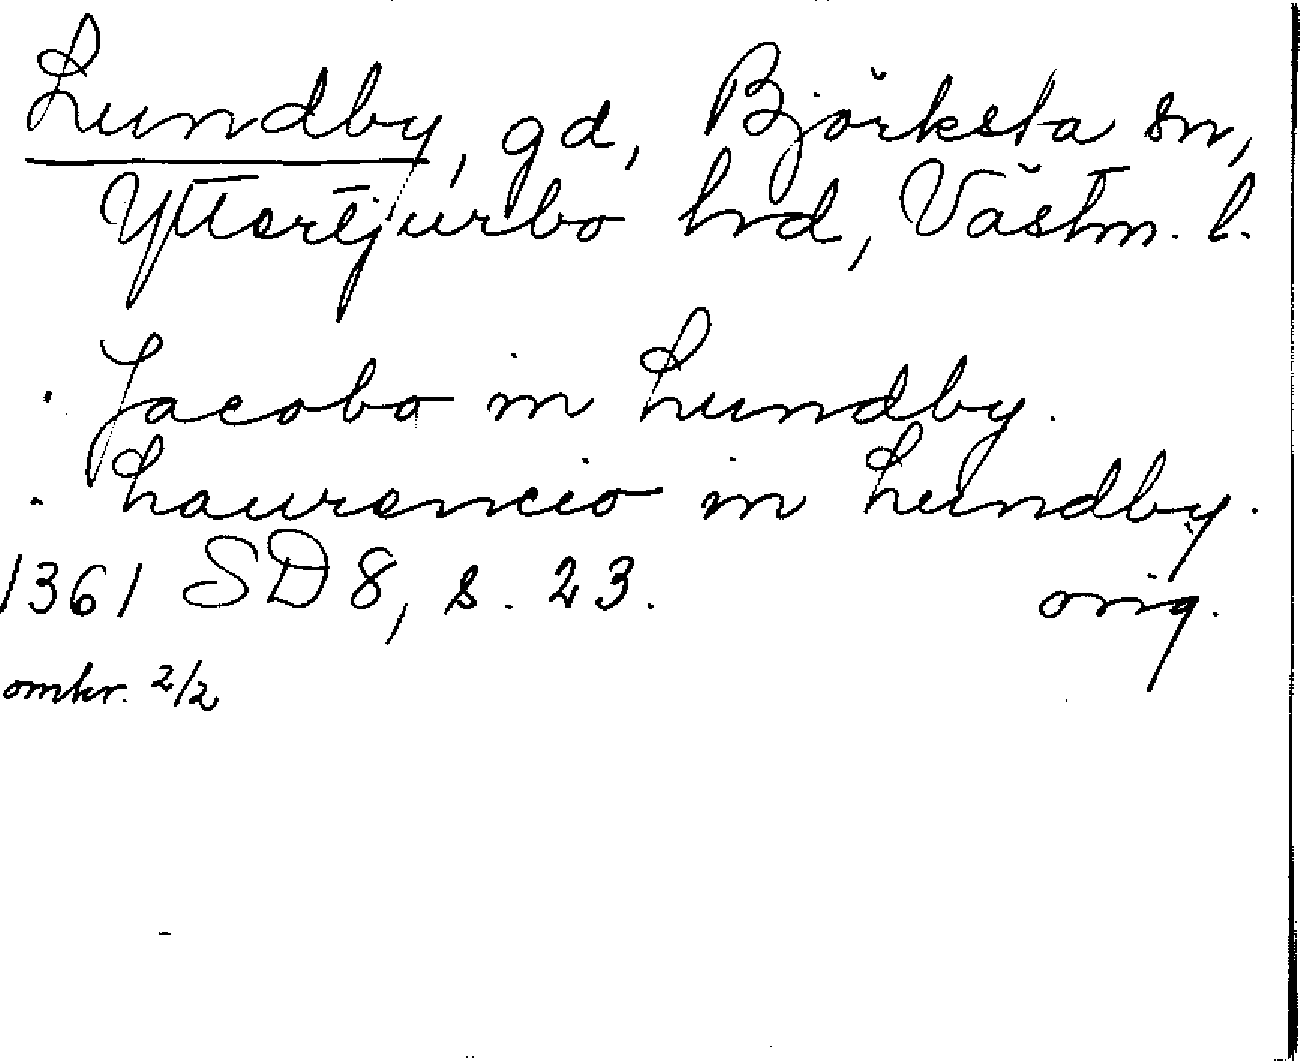 Lundby, gd, Björksta sn,
Yttertjurbo hrd, Västm. l.
. Jacobo in Lundby.
. Laurencio in Lundby.
1361 SD 8, s. 23. orig.
omkr. 2/2